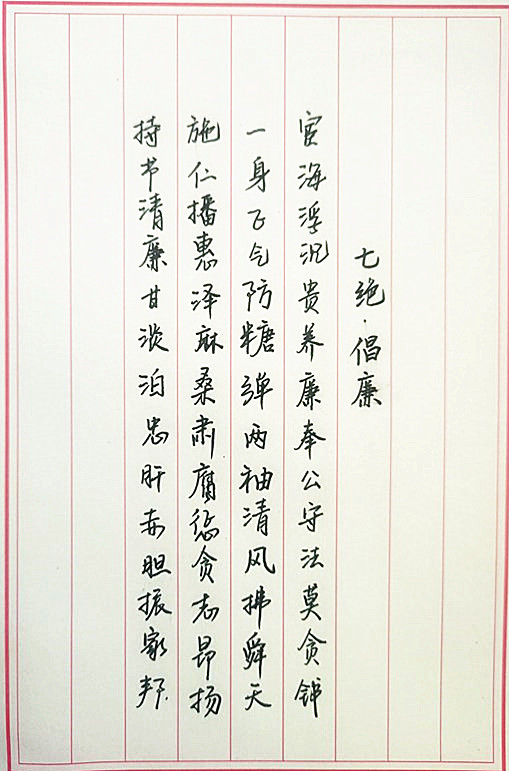 七绝·倡廉
宦海浮沉贵养廉奉公守法莫贪钱
一身正气防糖弹两袖清风拂舜天
施仁播惠泽麻桑肃腐惩贪志昂扬
持节清廉甘淡泊忠肝赤胆振家邦.